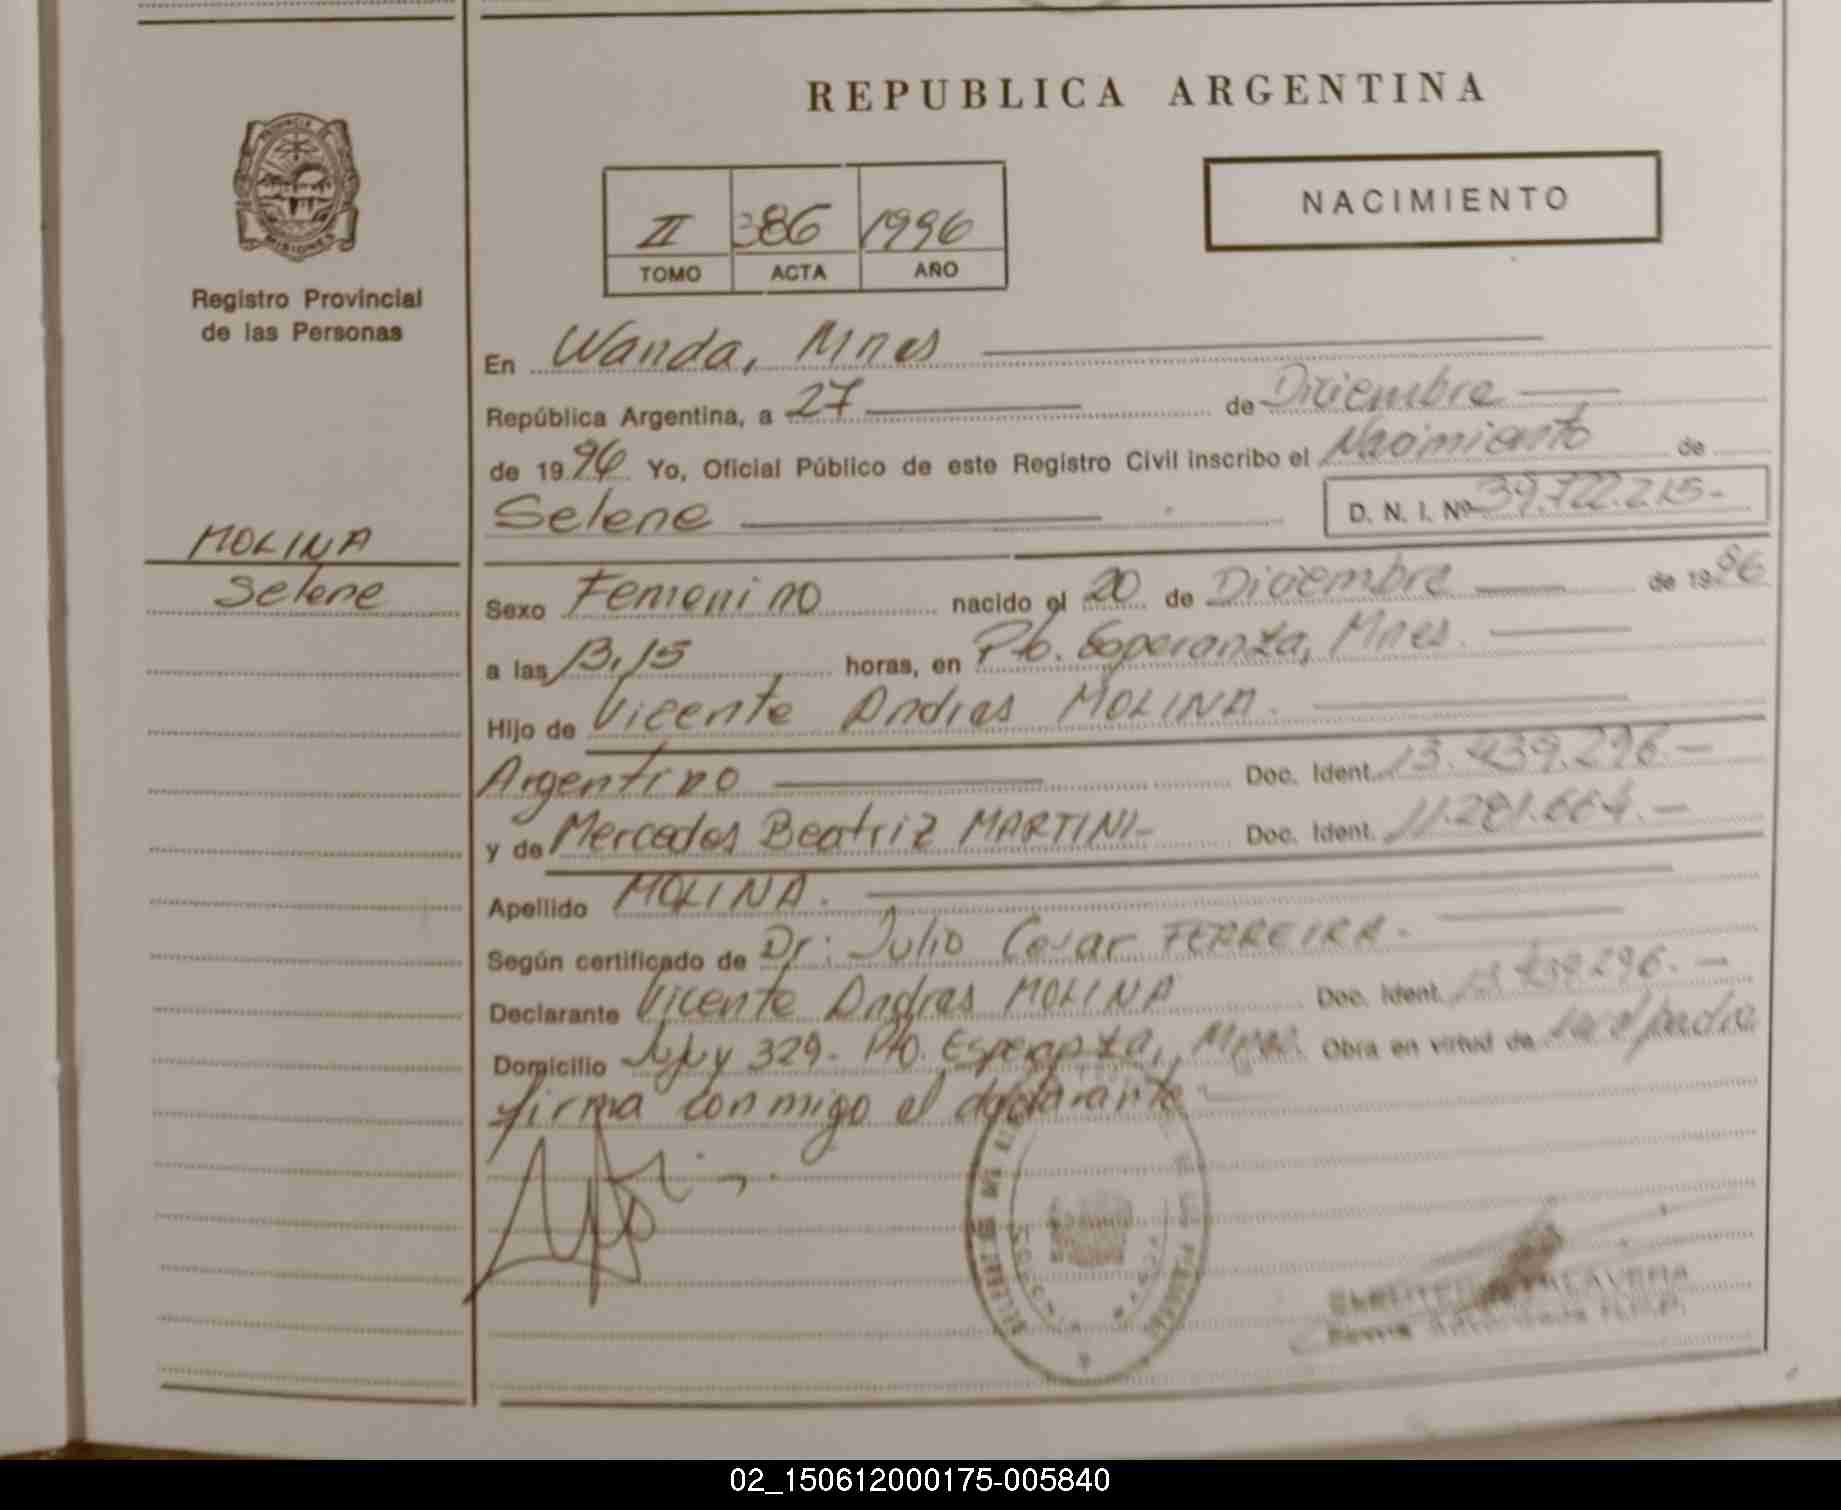 REPUBLICA ARGENTINA
PROVINCIA DE
MISIONES
Registro Provincial
de las Personas
II 386 1996
TOMO ACTA AÑO
NACIMIENTO
En Wanda, Mnes
República Argentina, a 27 de Diciembre
de 1996 Yo, Oficial Público de este Registro Civil inscribo el Nacimiento de
Selene D. N. I. Nº 39.722.215.-
MOLINA
Selene
Sexo Femenino nacido el 20 de Diciembre de 1996
a las 13,15 horas, en Pto. Esperanza, Mnes.
Hijo de Vicente Andres MOLINA.
Argentino Doc. Ident. 13.439.296.-
y de Mercedes Beatriz MARTINI- Doc. Ident. 11.281.664.-
Apellido MOLINA.
Según certificado de Dr: Julio Cesar FERREIRA.
Declarante Vicente Andres MOLINA Doc. Ident. 13.439.296.-
Domicilio Jujuy 329- Pto. Esperanza, Mnes. Obra en virtud de ser el padre
firma conmigo el declarante
TALAVERA
02_150612000175-005840